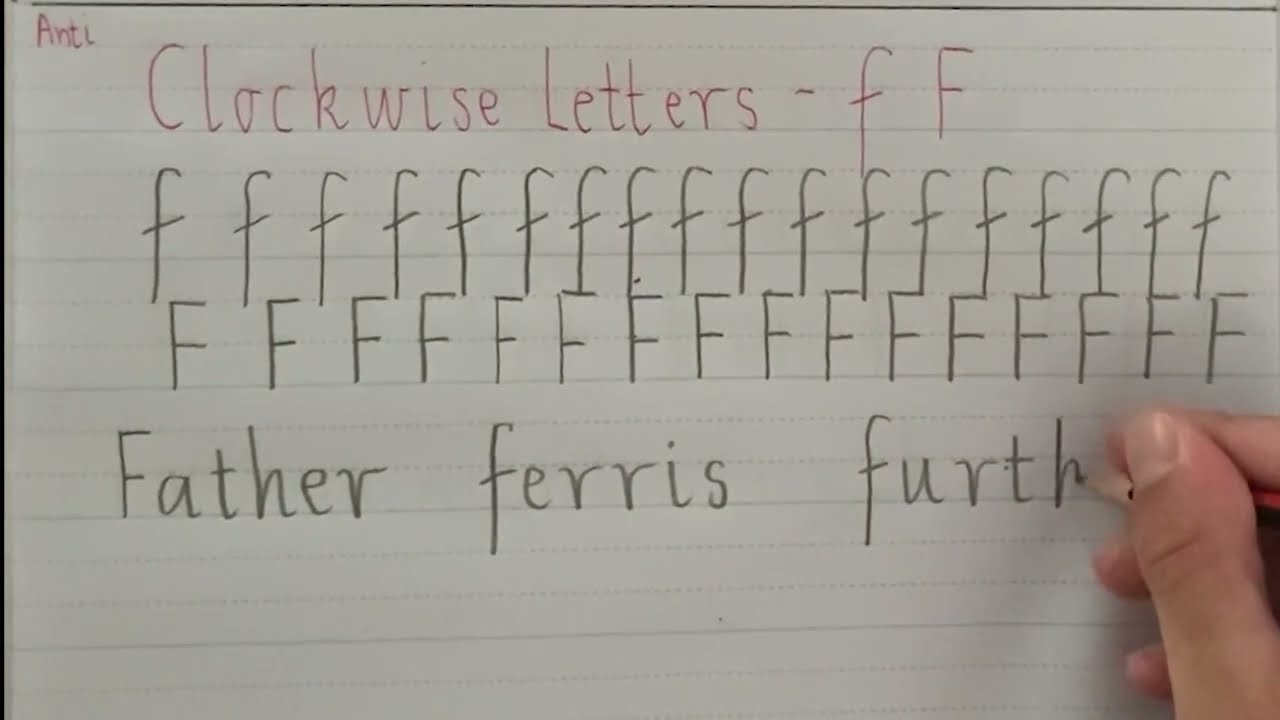 Anti
Clockwise Letters - f F
f f f f f f f f f f f f f f f f f f
F F F F F F F F F F F F F F F F
Father ferris furth